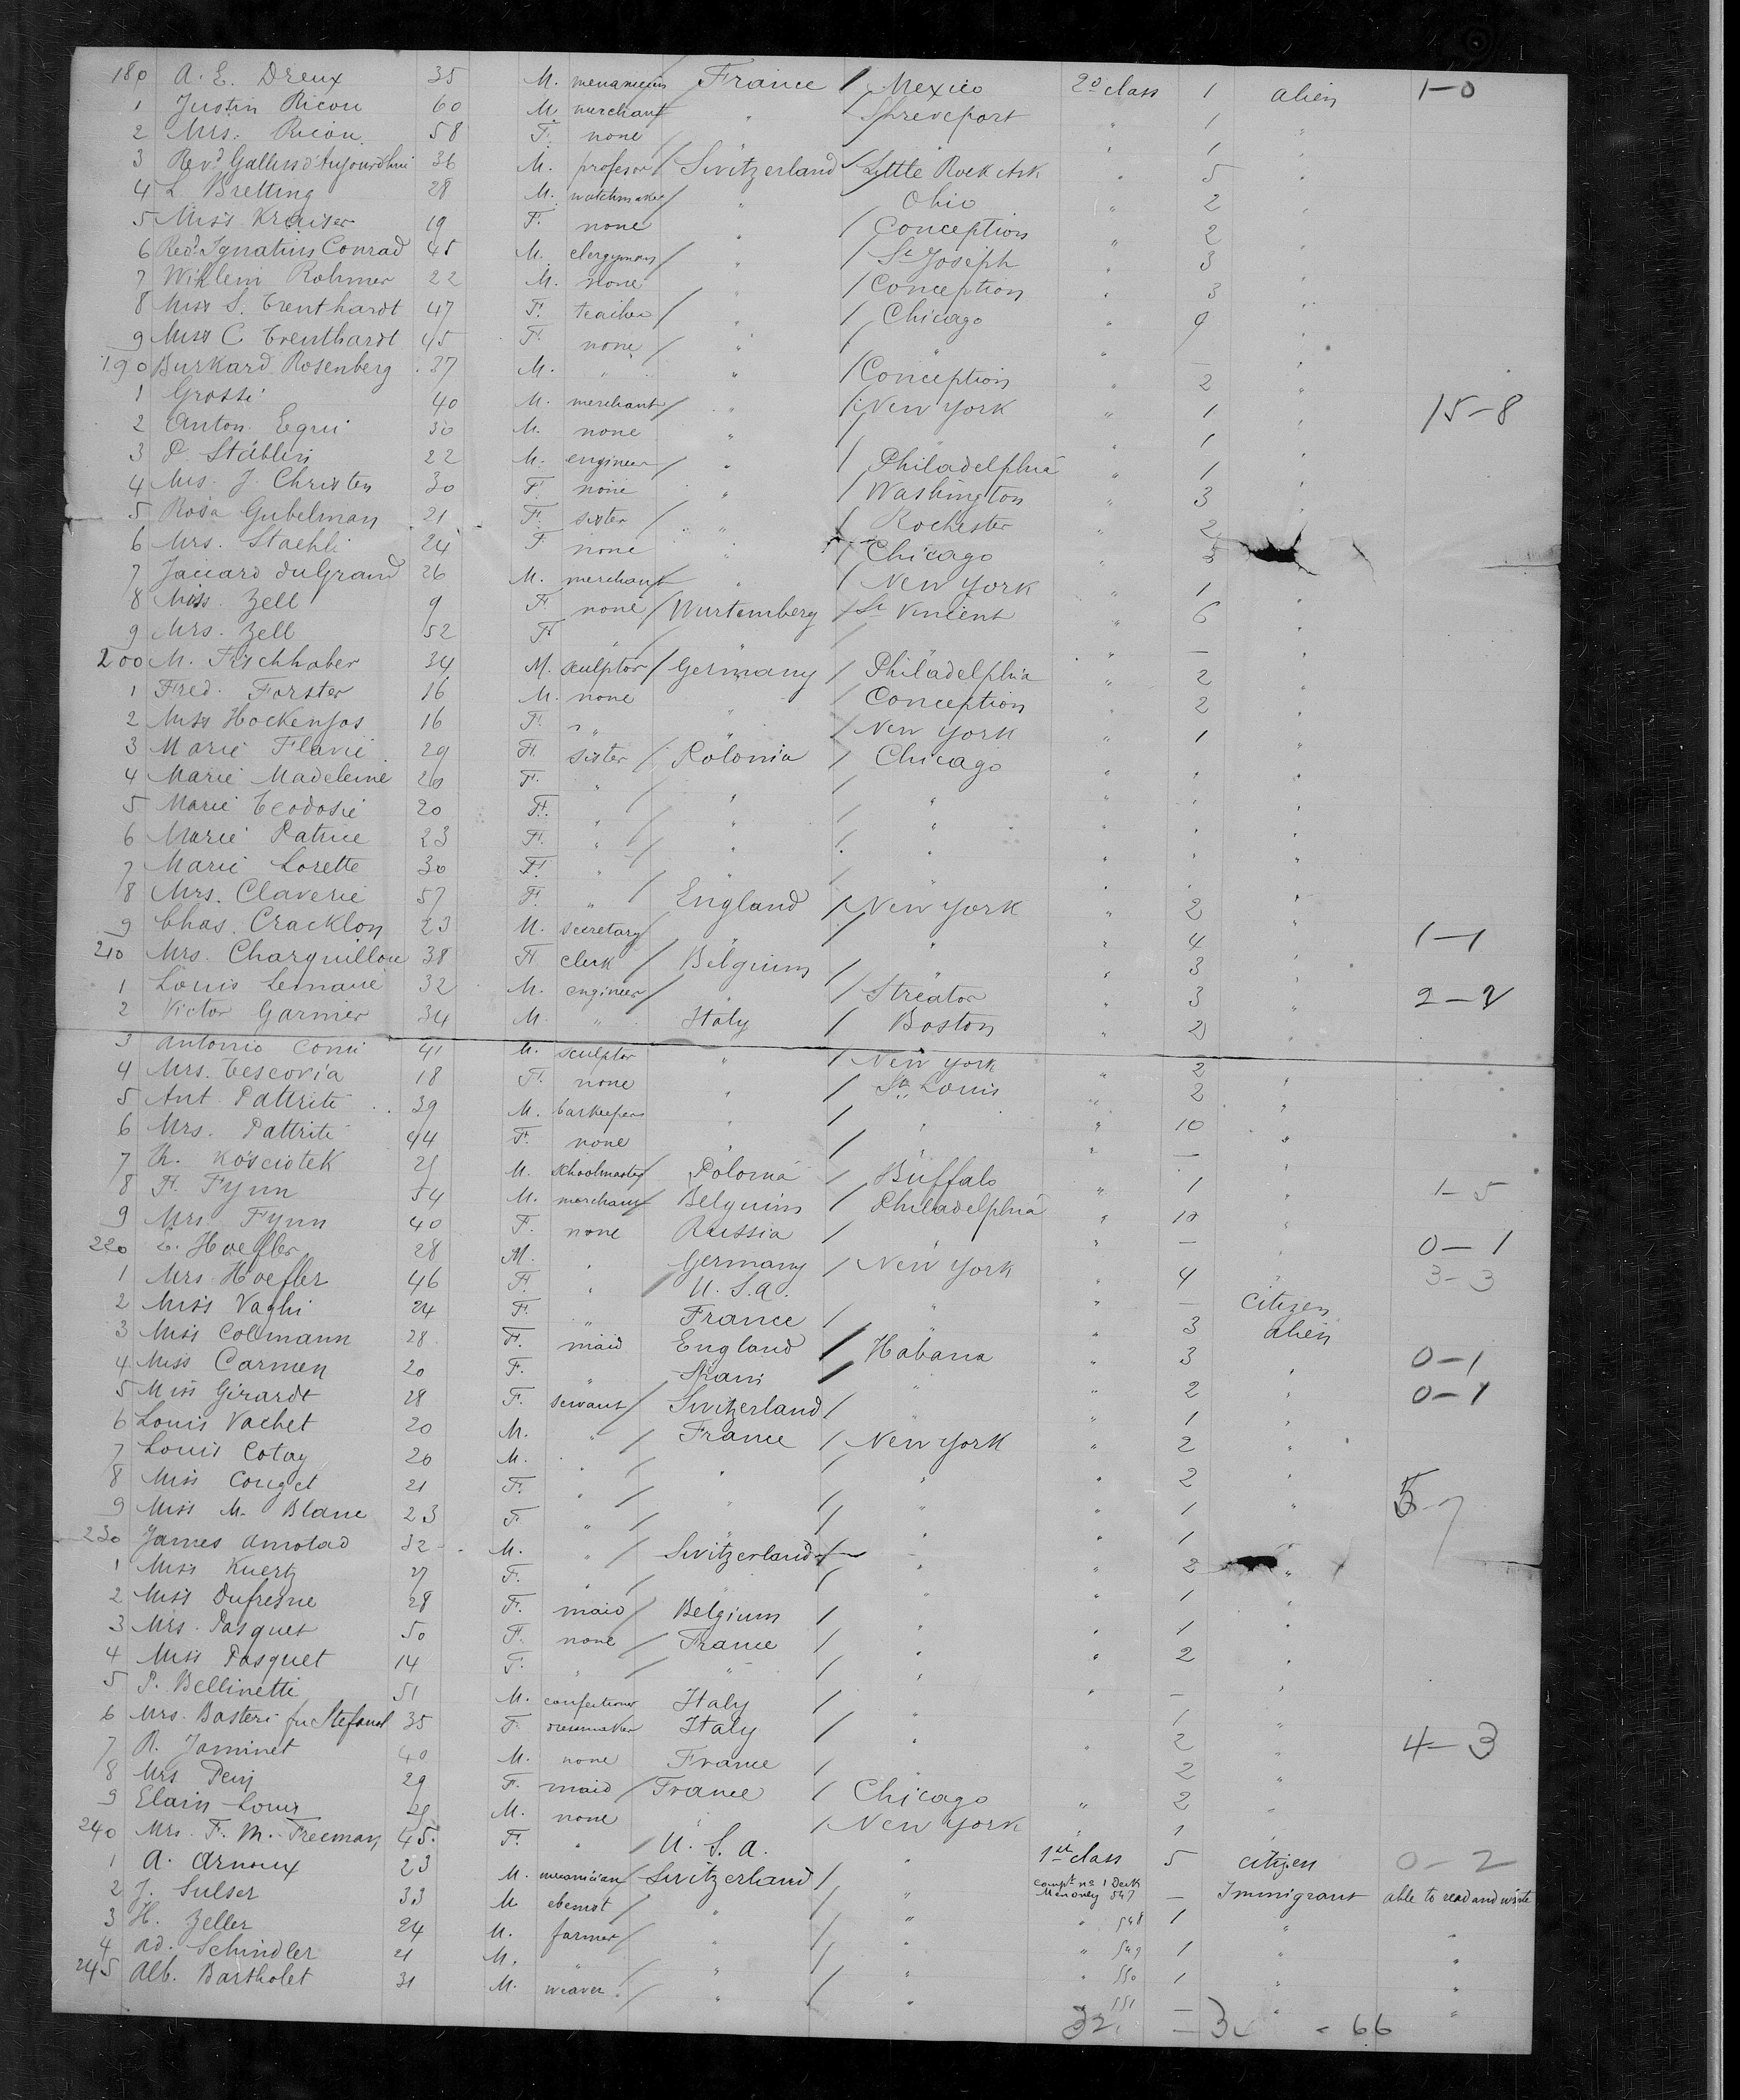 180 A. E. Dreux 35 M. France / Mexico 2d class 1 alien 1-0
1 Justin Ricou 60 M. merchant " / Shreveport " 1 "
2 Mrs. Ricou 58 F. none " " 1 "
3 Revd Gallus d'Aujourdhui 36 M. profesor / Switzerland / Little Rock Ark " 5 "
4 L. Bretting 28 M. watchmaker " Ohio " 2 "
5 Miss Kraiser 19 F. none " / Conception " 2 "
6 Revd Ignatius Conrad 45 M. clergyman / " / St Joseph " 3 "
7 Wihlem Rohmer 22 M. none " / Conception " 3 "
8 Miss S. Trenthardt 47 F. teacher / " / Chicago " 9 "
9 Miss C Trenthardt 45 F. none / " / " " — "
190 Burkard Rosenberg 37 M. " " / Conception " 2 "
1 Grossi 40 M. merchant / " / New York " 1 " 15-8
2 Anton Egui 30 M. none " / " " 1 "
3 P. Stäblin 22 M. engineer / " / Philadelphia " 1 "
4 Mrs. J. Christen 30 F. none " / Washington " 3 "
5 Rosa Gubelman 21 F. sister / " / Rochester " 2 "
6 Mrs. Staehli 24 F none " / Chicago " 3
7 Jaccard duGrand 26 M. merchant " / New York " 1 "
8 Miss Zell 9 F none / Wurtemberg / St Vincent " 6 "
9 Mrs. Zell 52 F " " / " " — "
200 M. Fischhaber 34 M. sculptor / Germany / Philadelphia " 2 "
1 Fred. Forster 16 M. none " / Conception " 2 "
2 Miss Hockenjos 16 F. " / New York " 1 "
3 Marie Flavie 29 F. sister / Polonia / Chicago " " "
4 Marie Madeleine 26 F. " / " / " " " "
5 Marie Teodosie 20 F. " / " / " " " "
6 Marie Patrice 23 F. " / " / " " " "
7 Marie Lorette 30 F. " / " / " " " "
8 Mrs. Claverie 57 F. " / England / New York " 2 "
9 Chas. Cracklon 23 M. secretary " / " " 4 " 1-1
210 Mrs. Charquillou 38 F. clerk / Belgium / " " 3 "
1 Louis Lemaire 32 M. engineer / " / Streator " 3 " 2-2
2 Victor Garnier 34 M. " Italy / Boston " 2 "
3 Antonio Comi 41 M. sculptor " / New York " 2
4 Mrs. Tescovia 18 F. none " / St. Louis " 2 "
5 Ant. Pattriti 39 M. barkeeper " / " " 10 "
6 Mrs. Pattriti 44 F. none " / " " — "
7 R. Kosciotek M. schoolmaster / Polonia / Buffalo " 1 " 1-5
8 F. Fynn 54 M. merchant Belguim / Philadelphia " 10 "
9 Mrs. Fynn 40 F. none Russia / " " — " 0-1
220 E. Hoefler 28 M. " Germany / New York " 4 " 3-3
1 Mrs. Hoefler 46 F. " U.S.A. " " — citizen
2 Miss Vaghi 24 F. " France / " " 3 alien
3 Miss Colmann 28 F. maid England / Habana " 3 " 0-1
4 Miss Carmen 20 F. " / " " 2 " 0-1
5 Miss Girardt 28 F. servant / Switzerland / " " 1 "
6 Louis Vachet 20 M. " / France / New York " 2 "
7 Louis Cotay 20 M. " / " / " " 2 "
8 Miss Couget 21 F. " / " / " " 1 " 5-7
9 Miss M. Blanc 23 F " / " / " " 1
230 James 32 M. " / Switzerland / " " 2 "
1 Miss Kuertz 27 F. " / " / " " 1 "
2 Miss Dufresne 28 F. maid / Belgium / " " 1 "
3 Mrs. Pasquet 50 F. none / France / " " 2 "
4 Miss Pasquet 14 F. " / " / " " — "
5 P. Bellinetti 51 M. confectioner Italy / " 1 "
6 Mrs. Basteri fu Stefanol 35 F. dressmaker Italy / " " 2 " 4-3
7 R. Jaminet 40 M. none France / " 2 "
8 Mrs 29 F. maid / France / Chicago " 2 "
9 Elain Louis M. none " / New York " 1 "
240 Mrs. F. M. Freeman 45. F. " / U.S.A. " 1st class 5 citizen 0-2
1 A. Arnoux 23 M. mecanician / Switzerland / " compt no 1 Deck Men only 547 — Immigrant able to read and write
2 J. Sulser 33 M. / " / " " 548 1 " "
3 H. Zeller 24 M. farmer / " / " " 549 1 " "
4 Ad. Schindler 21 M. " / " / " " 550 1 " "
245 Alb. Bartholet 31 M. weaver / " / " 551 — " "
32. — 3 - 66